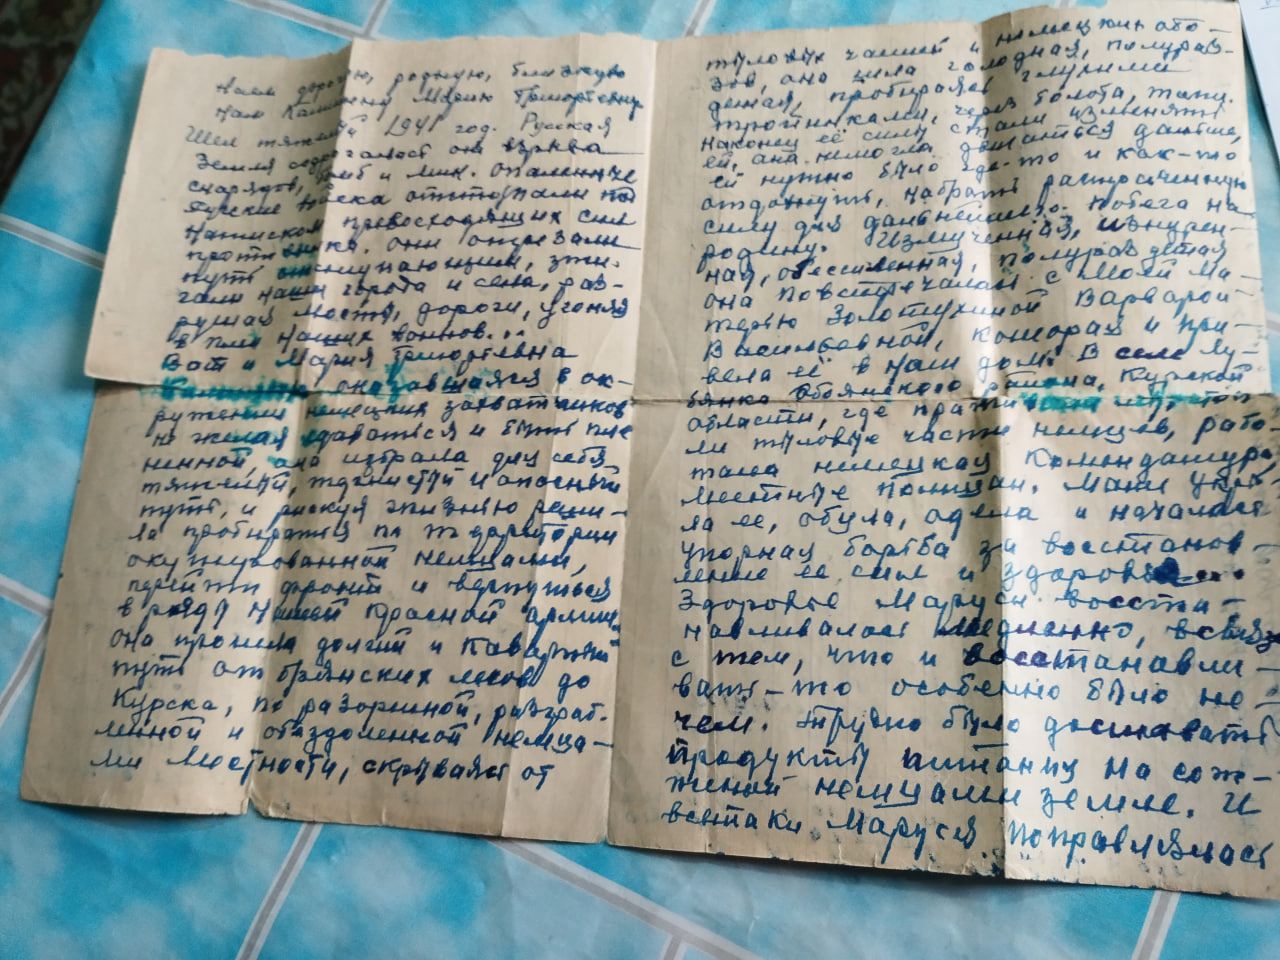 нам дорогую, родную, близкую
нам Марию Григорьевну
Шел тяжелый 1941 год. Русская
земля содрогалась от взрыва
снарядов, бомб и мин. опаленные
войска отступали под
натиском превосходящих сил
противника. они отрезали
путь отступающим, зжи-
гали наши города и села, раз-
рушая мосты, дороги, угоняя
в плен наших воинов...
Вот и Мария Григорьевна
оказавшаяся в ок-
ружении немецких захватчиков
не желая сдаваться и быть пле
ненной, она избрала для себя
тяжелый, тернистый и опасный
путь, и рискуя жизнью реши-
ла пробираться по территории
окупированной немцами,
перейти фронт и вернуться
в ряды нашей красной армии,
она прошла долгий и коварный
путь от брянских лесов до
Курска, по разоренной, разграб-
ленной и обездоленной немца-
ми местности, скрываясь от
тыловых частей и немецких обо-
зов, она шла голодная, полураз-
детая, пробираясь глухими
тропинками, через болота, топи.
наконец её силы стали изменять
ей, она немогла двигаться дальше,
ей нужно было где-то и как-то
отдохнуть, набрать растраченную
силу для дальнейшего побега на
родину. Измученная, изнурен-
ная, обессиленная, полураздетая
она повстречалась с моей ма-
терью Золотухиной Варварой
Васильевной, которая и при-
вела её в наш дом. В селе Лу-
бянка Обоянского района, Курской
области, где
ли тыловые части немцев, рабо-
тала немецкая комендатура,
местные полицаи. Мама укры-
ла ее, обула, одела и началась
упорная борьба за восстанов-
ление ее сил и здоровья
Здоровье Маруси восста-
навливалось медленно, в связи
с тем, что и восстанавли-
вать-то особенно было не-
чем. трудно было доставать
продукты питания на сож-
женной немцами земле. И
всетаки Маруся поправлялась